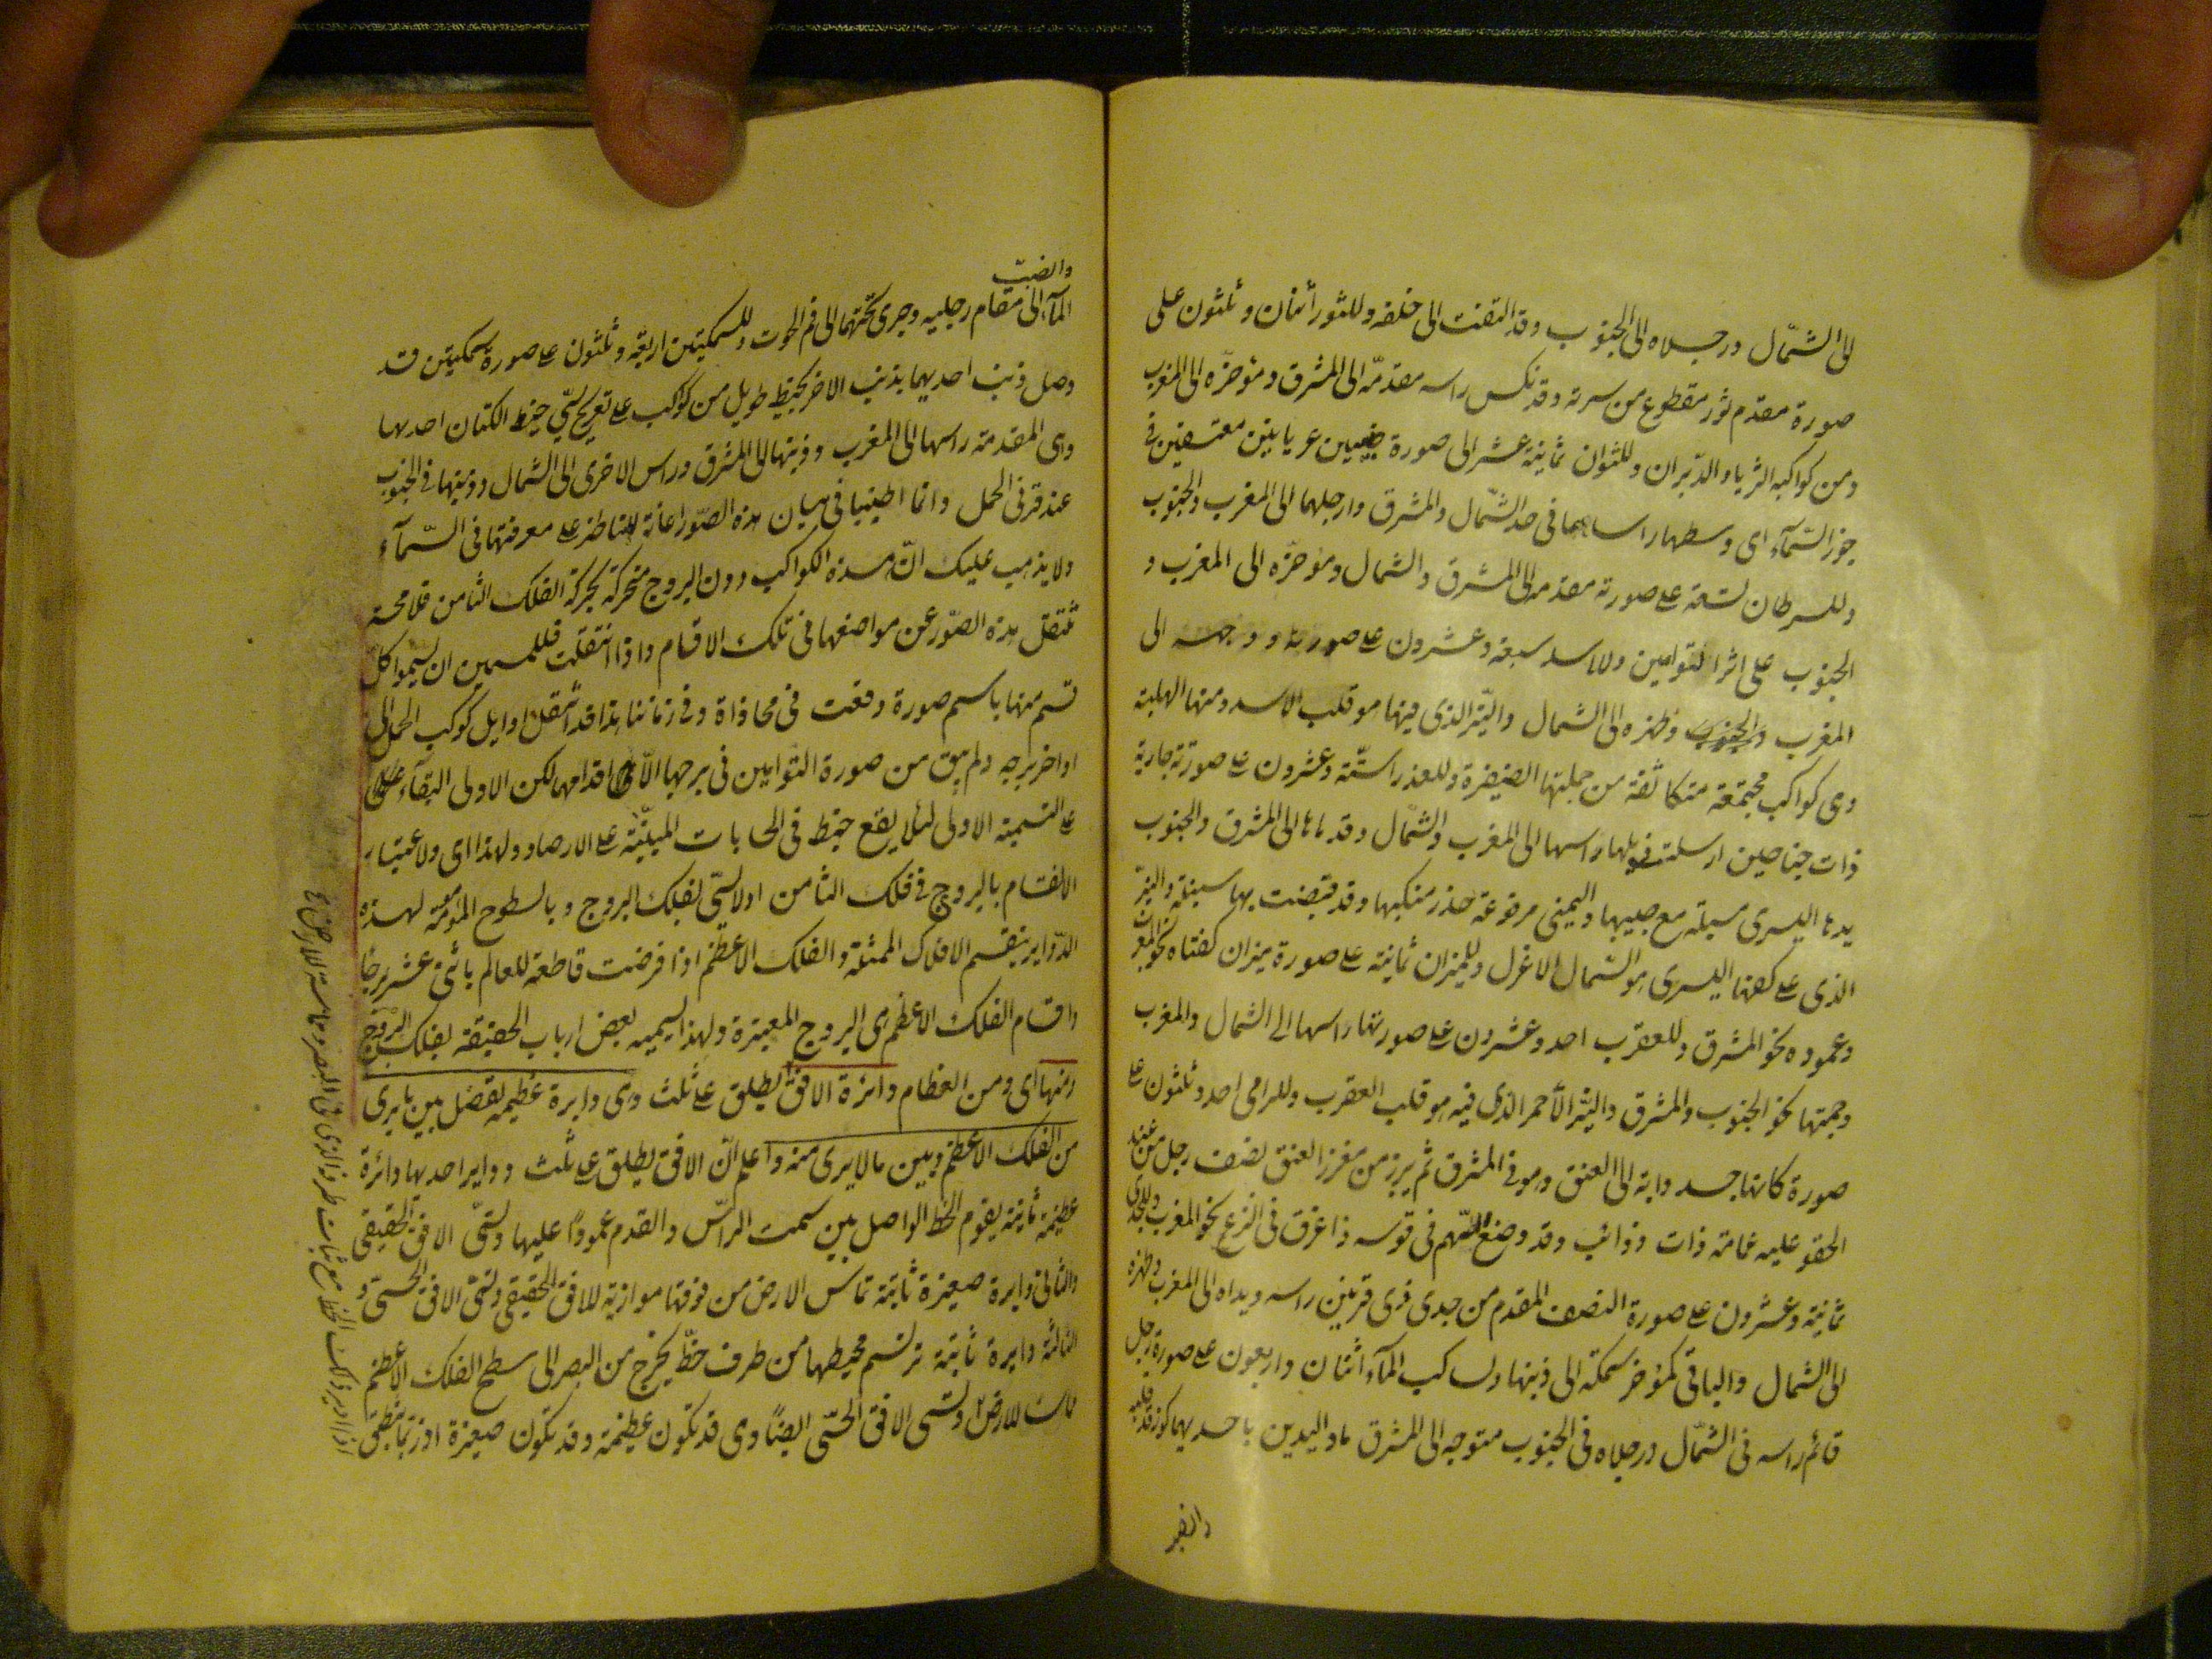 الى الشمّال ورجلاه الى الجنوب وقد التفت الى خلفه وللثور أثنان وثلثون على
صورة مقدم ثور مقطوع من سرته وقد نكس راسه مقدمّه الى المشرق ومؤخرّه الى المغرب
ومن كواكبه الثريا والدّبران وللتوأمين ثمانية عشر الى صورة صبيين عريانين معتنقين فى
جوز السّمآء اى وسطها راساهما فى حد الشّمال والمشرق وارجلهما الى المغرب والجنوب
وللسرطان تسعة على صورته مقدمه الى المشرق والشمال ومؤخرّه الى المغرب و
الجنوب على اثر التوامين وللاسد سبعة وعشرون على صورته ووجهه الى
المغرب والجنوب وظهره الى الشمال والنيّر الذى فيها هو قلب الاسد ومنها الهلبة
وهى كواكب مجتمعة متكاثفة من جملتها الضفيرة وللعذراء ستّة وعشرون على صورة جارية
ذات جناحين ارسلت ذيلها راسها الى المغرب والشمّال وقدماها الى المشرق والجنوب
يدها اليسرى مسبلة مع جنبها واليمنى مرفوعة حذو منكبها وقد قبضت بها سنبلة والنيّر
الذى على كفها اليسرى هو السّماك الاعزل وللميزان ثمانية على صورة ميزان كفتاه نحو المغرب
وعموده نحو المشرق وللعقرب احد وعشرون على صورتها راسها الى الشمال والمغرب
وحمتها نحو الجنوب والمشرق والنيّر الأحمر الذى فيه هو قلب العقرب وللرامى احد وثلثون على
صورة كانها جسد دابة الى العنق وهو فى المشرق ثم يبرز من مغرز العنق نصف رجل من عند
الحقو عليه عمامة ذات ذوائب وقد وضع السّهم فى قوسه واغرق فى النزع نحو المغرب وللجدى
ثمانية وعشرون على صورة النصف المقدم من جدى ذى قرنين راسه ويداه الى المغرب وظهره
الى الشمال والباقى كمؤخر سمكة الى ذنبها ولساكب المآء اثنان واربعون على صورة رجل
قائم راسه فى الشمّال ورجلاه فى الجنوب متوجه الى المشرق ماد اليدين باحديهما كوز قد قلبه
وانصبّ
المآء الى مقام رجليه وجرى تحتهما الى فم الحوت وللسمكتين اربعة وثلثون على صورة سمكتين قد
وصل ذنب احديهما بذنب الاخر بخيط طويل من كواكب على تعريج يسمّى خيط الكتان احديها
وهى المقدمة راسها الى المغرب وذنبها الى المشرق وراس الاخرى الى الشمال وذنبها فى الجنوب
عند قرنى الحمل وانما اطنبنا فى بيان هذه الصّور اعانة للناظر على معرفتها فى السّمآء
ولا يذهب عليك انّ هذه الكواكب دون البروج متحركة بحركة الفلك الثامن فلا محة
تنتقل هذه الصّور عن مواضعها فى تلك الاقسام واذا انتقلت فللمسمين ان يسموا كل
قسم منها باسم صورة وقعت فى محاذاة وفى زماننا هذا قد انتقل اوايل كوكب الحمل الى
اواخر برجه ولم يبق من صورة التّوامين فى برجها الّا اقدامها لكن الاولى البقآء
على التسمية الاولى لئلا يقع خبط فى الحسابات المبنيّة على الارصاد ولهذا اى ولاعتبار
الانقسام بالبروج فى فلك الثامن اولا سمّى بفلك البروج وبالسطوح المتوهّمة لهذه
الدّواير ينقسم الافلاك الممثلة والفلك الاعظم اذا فرضت قاطعة للعالم باثنى عشر برجًا
واقسام الفلك الاعظم هى البروج المعتبرة ولهذا يسميه بعض ارباب الحقيقة بفلك البروج
ومنها اى ومن العظام دائرة الافق يطلق على ثلث وهى دايرة عظيمة تفصل بين ما يرى
من الفلك الاعظم وبين ما لا يرى منه واعلم انّ الافق يطلق على ثلث دواير احديها دائرة
عظيمة ثابتة يقوم الخط الواصل بين سمت الراس والقدم عمودًا عليها وتسمّى الافق الحقيقى
والثانى دايرة صغيرة ثابتة تماس الارض من فوقها موازية للافق الحقيقى وتسمّى الافق الحسّى و
الثالثة دايرة ثابتة ترتسم محيطها من طرف خطّ يخرج من البصر الى سطح الفلك الاعظم
مماسا للارض وتسمى الافق الحسّى ايضًا وهى قد تكون عظيمة وقد تكون صغيرة اذ ربما ينطبق
اذا ادير ذلك الخط مع ثبات طرفه الذى فى البصر ومماسة للارض